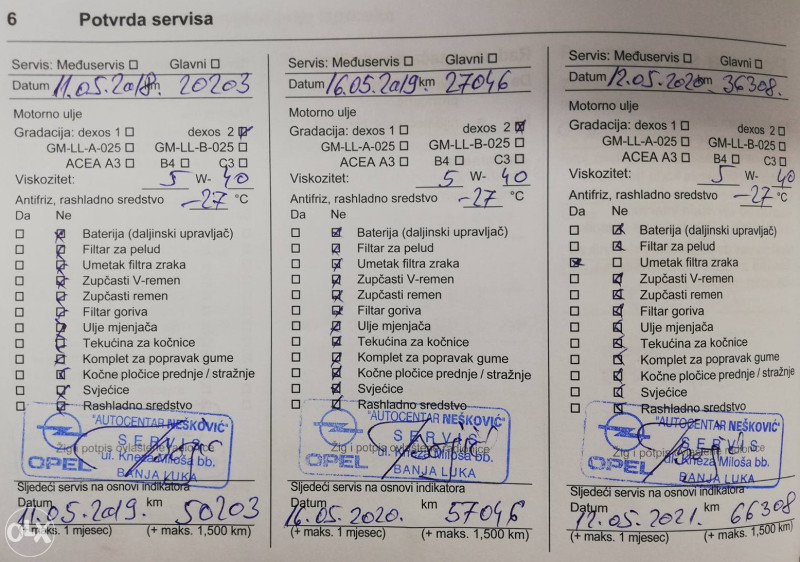 6 Potvrda servisa
Servis: Međuservis Glavni
Datum 11.05.2018. km 20203
Motorno ulje
Gradacija: dexos 1 dexos 2
GM-LL-A-025 GM-LL-B-025
ACEA A3 B4 C3
Viskozitet: 5 W- 40
Antifriz, rashladno sredstvo -27 °C
Da Ne
Baterija (daljinski upravljač)
Filtar za pelud
Umetak filtra zraka
Zupčasti V-remen
Zupčasti remen
Filtar goriva
Ulje mjenjača
Tekućina za kočnice
Komplet za popravak gume
Kočne pločice prednje / stražnje
Svjećice
Rashladno sredstvo
"AUTOCENTAR NEŠKOVIĆ"
SERVIS
Žig i potpis ovlaštene radionice
ul. Kneza Miloša bb.
OPEL
BANJA LUKA
Sljedeći servis na osnovi indikatora
Datum 11.05.2019. km 50203
(+ maks. 1 mjesec) (+ maks. 1,500 km)
OLX
Servis: Međuservis Glavni
Datum 16.05.2019 km 27046
Motorno ulje
Gradacija: dexos 1 dexos 2
GM-LL-A-025 GM-LL-B-025
ACEA A3 B4 C3
Viskozitet: 5 W- 40
Antifriz, rashladno sredstvo -27 °C
Da Ne
Baterija (daljinski upravljač)
Filtar za pelud
Umetak filtra zraka
Zupčasti V-remen
Zupčasti remen
Filtar goriva
Ulje mjenjača
Tekućina za kočnice
Komplet za popravak gume
Kočne pločice prednje / stražnje
Svjećice
Rashladno sredstvo
"AUTOCENTAR NEŠKOVIĆ"
SERVIS
Žig i potpis ovlaštene radionice
ul. Kneza Miloša bb.
OPEL
BANJA LUKA
Sljedeći servis na osnovi indikatora
Datum 16.05.2020. km 57046
(+ maks. 1 mjesec) (+ maks. 1,500 km)
Servis: Međuservis Glavni
Datum 12.05.2020. km 36308.
Motorno ulje
Gradacija: dexos 1 dexos 2
GM-LL-A-025 GM-LL-B-025
ACEA A3 B4 C3
Viskozitet: 5 W- 40
Antifriz, rashladno sredstvo -27 °C
Da Ne
Baterija (daljinski upravljač)
Filtar za pelud
Umetak filtra zraka
Zupčasti V-remen
Zupčasti remen
Filtar goriva
Ulje mjenjača
Tekućina za kočnice
Komplet za popravak gume
Kočne pločice prednje / stražnje
Svjećice
Rashladno sredstvo
"AUTOCENTAR NEŠKOVIĆ"
SERVIS
Žig i potpis ovlaštene radionice
ul. Kneza Miloša bb.
OPEL
BANJA LUKA
Sljedeći servis na osnovi indikatora
Datum 12.05.2021. km 66308
(+ maks. 1 mjesec) (+ maks. 1,500 km)